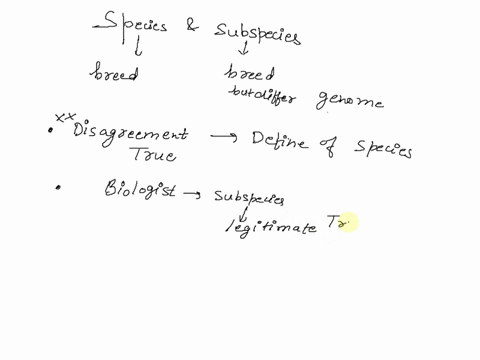 Species & Subspecies
breed breed
but differ genome
xx
• Disagreement → Define of Species
True
• Biologist → Subspecies
legitimate Tr